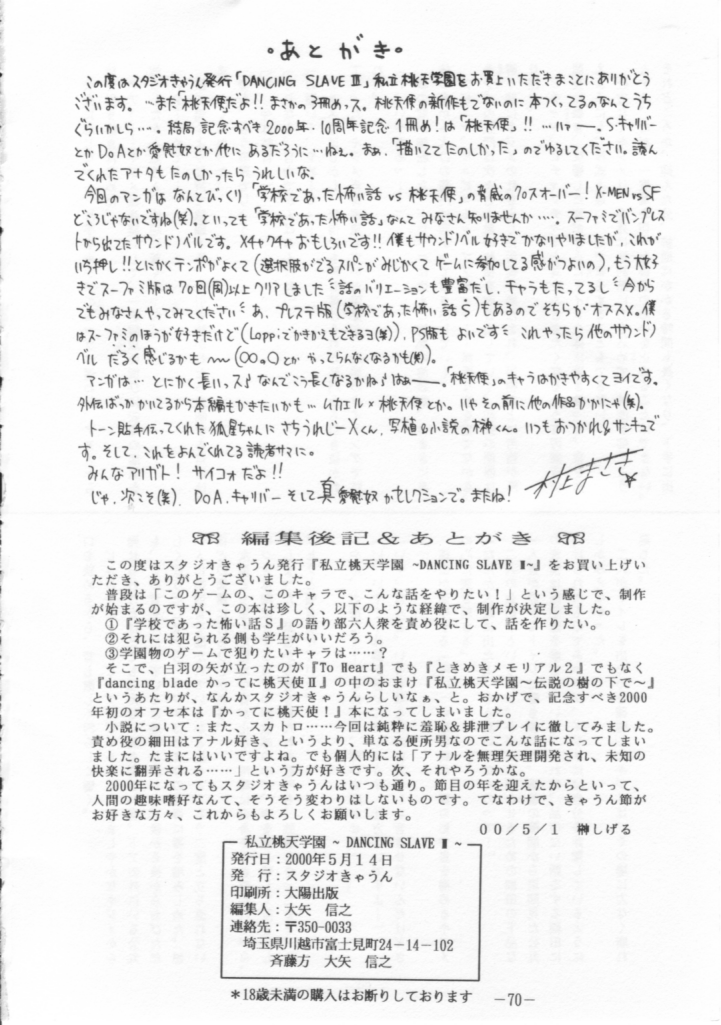 ・あとがき・
この度はスタジオきゃうん発行「DANCING SLAVE Ⅲ」私立桃天学園をお買上いただきまことにありがとう
ございます。…また「桃天使」だよ!!まさかの3冊めっス。桃天使の新作もでないのに本つくってるのなんてうち
ぐらいかしら…。結局記念すべき2000年・10周年記念1冊め!は「桃天使」!!…ハァー。S・キャリバー
とかDoAとか愛慰奴とか他にあるだろうに…ねぇ。まぁ、「描いててたのしかった」のでゆるしてください。読ん
でくれたアナタもたのしかったらうれしいな。
今回のマンガはなんとびっくり「学校であった怖い話 vs 桃天使」の脅威のクロスオーバー!X-MEN vs SF
どころじゃないですね(笑)。といっても「学校であった怖い話」なんてみなさん知りませんか…。スーファミでバンプレス
トから出てたサウンドノベルです。メチャクチャおもしろいです!!僕もサウンドノベル好きでかなりやりましたが、これが
いち押し!!とにかくテンポがよくて(選択肢がでるスパンがみじかくてゲームに参加してる感がつよいの)、もう大好
きでスーファミ版は70回(周)以上クリアしました 話のバリエーションも豊富だし、キャラもたってるし 今から
でもみなさんやってみてください あ、プレステ版(学校であった怖い話S)もあるのでそちらがオススメ。僕
はスーファミのほうが好きだけど(Loppiでかきかえもできるヨ(笑))、PS版もよいです これやったら他のサウンド
ベルだるく感じるかも〜(○○。○とかやってらんなくなるかも(笑))。
マンガは…とにかく長いっス♪なんでこう長くなるかね♪はぁー。「桃天使」のキャラはかきやすくてヨイです。
外伝ばっかかいてるから本編もかきたいかも…ムカエル×桃天使とか。いやその前に他の作品かかにゃ(笑)。
トーン貼手伝ってくれた狐星ちゃんにさちうれじーXくん、写植&小説の榊くん。いつもおつかれ&サンキュで
す。そして、これをよんでくれてる読者サマに。
みんなアリガト!サイコォだよ!!
じゃ、次こそ(笑)、DoA、キャリバーそして真愛慰奴かセレクションで。またね!
村上まさき
編集後記&あとがき
この度はスタジオきゃうん発行『私立桃天学園 ~DANCING SLAVE Ⅲ~』をお買い上げい
ただき、ありがとうございました。
普段は「このゲームの、このキャラで、こんな話をやりたい!」という感じで、制作
が始まるのですが、この本は珍しく、以下のような経緯で、制作が決定しました。
①『学校であった怖い話S』の語り部六人衆を責め役にして、話を作りたい。
②それには犯られる側も学生がいいだろう。
③学園物のゲームで犯りたいキャラは……?
そこで、白羽の矢が立ったのが『To Heart』でも『ときめきメモリアル2』でもなく
『dancing blade かってに桃天使Ⅱ』の中のおまけ『私立桃天学園~伝説の樹の下で~』
というあたりが、なんかスタジオきゃうんらしいなぁ、と。おかげで、記念すべき2000
年初のオフセ本は『かってに桃天使!』本になってしまいました。
小説について:また、スカトロ……今回は純粋に羞恥&排泄プレイに徹してみました。
責め役の細田はアナル好き、というより、単なる便所男なのでこんな話になってしまい
ました。たまにはいいですよね。でも個人的には「アナルを無理矢理開発され、未知の
快楽に翻弄される……」という方が好きです。次、それやろうかな。
2000年になってもスタジオきゃうんはいつも通り。節目の年を迎えたからといって、
人間の趣味嗜好なんて、そうそう変わりはしないものです。てなわけで、きゃうん節が
お好きな方々、これからもよろしくお願いします。
00/5/1 榊しげる
私立桃天学園 ~ DANCING SLAVE Ⅲ ~
発行日:2000年5月14日
発 行:スタジオきゃうん
印刷所:大陽出版
編集人:大矢 信之
連絡先:〒350-0033
埼玉県川越市富士見町24-14-102
斉藤方 大矢 信之
*18歳未満の購入はお断りしております
-70-